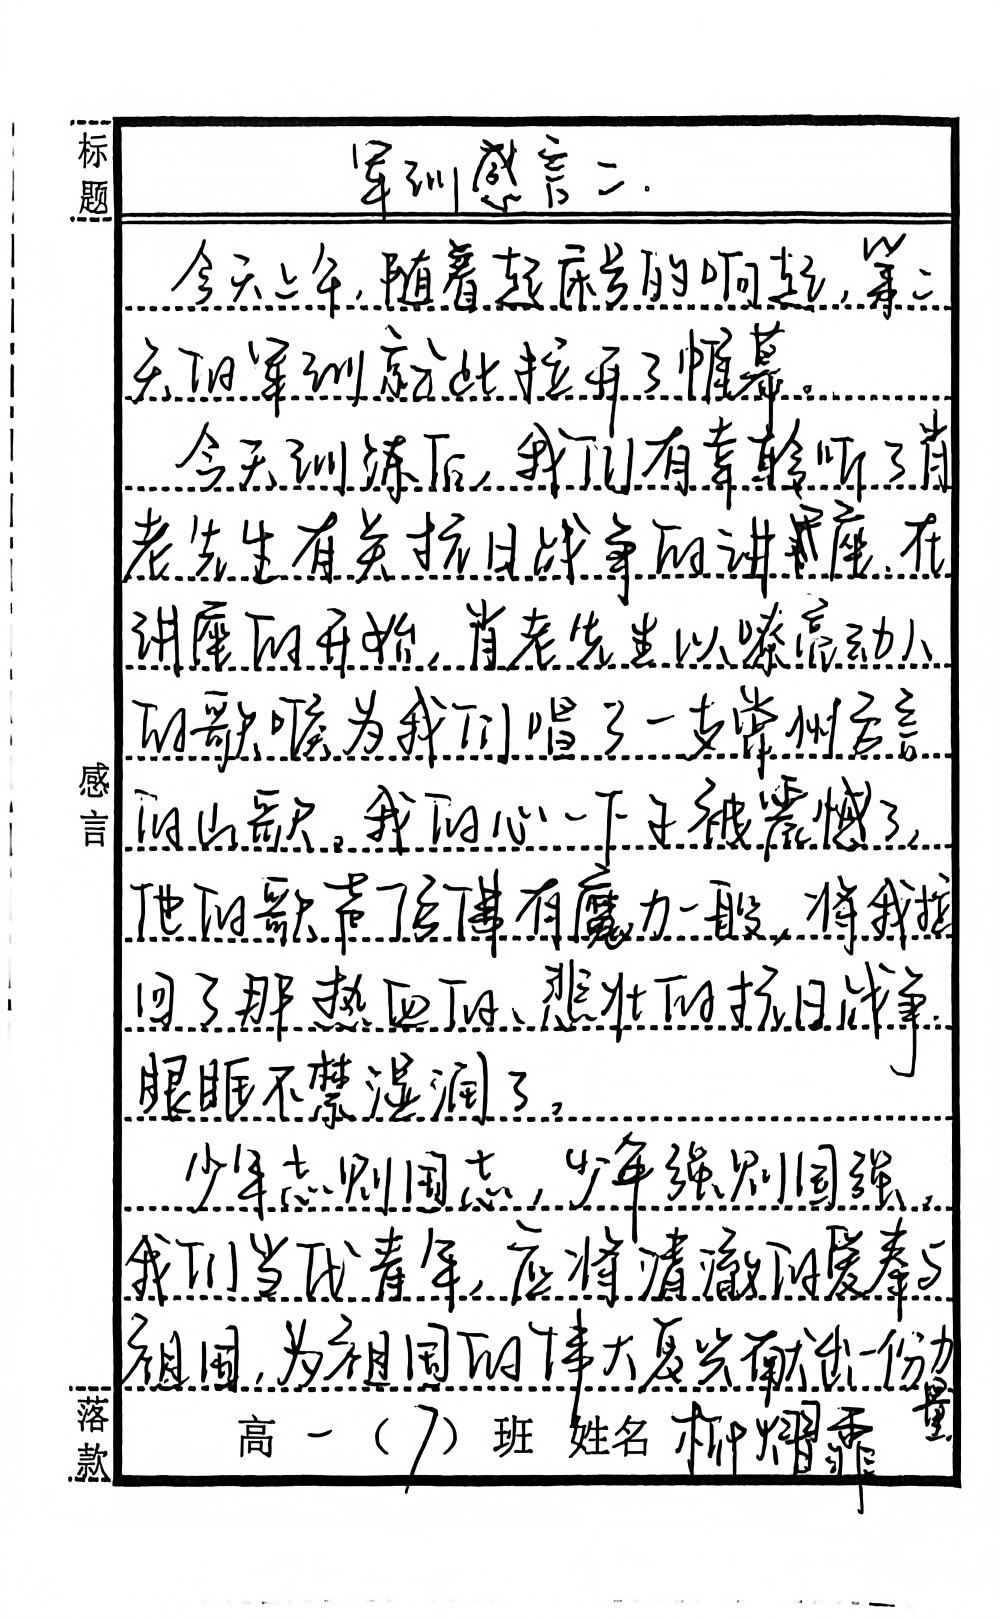 标题
军训感言二.
今天上午,随着起床号的响起,第二
天的军训就此拉开了帷幕。
今天训练后,我们有幸聆听了肖
老先生有关抗日战争的讲座.在
讲座的开始,肖老先生以嘹亮动人
的歌喉为我们唱了一支常州方言
的山歌。我的心一下子被震憾了,
他的歌声仿佛有魔力一般,将我拉
回了那热血的、悲壮的抗日战争.
眼眶不禁湿润了。
少年志则国志,少年强则国强。
我们当代青年,应将清澈的爱奉与
祖国,为祖国的伟大复兴献出一份力
量
感言
落款
高一(7)班 姓名 柳熠霏